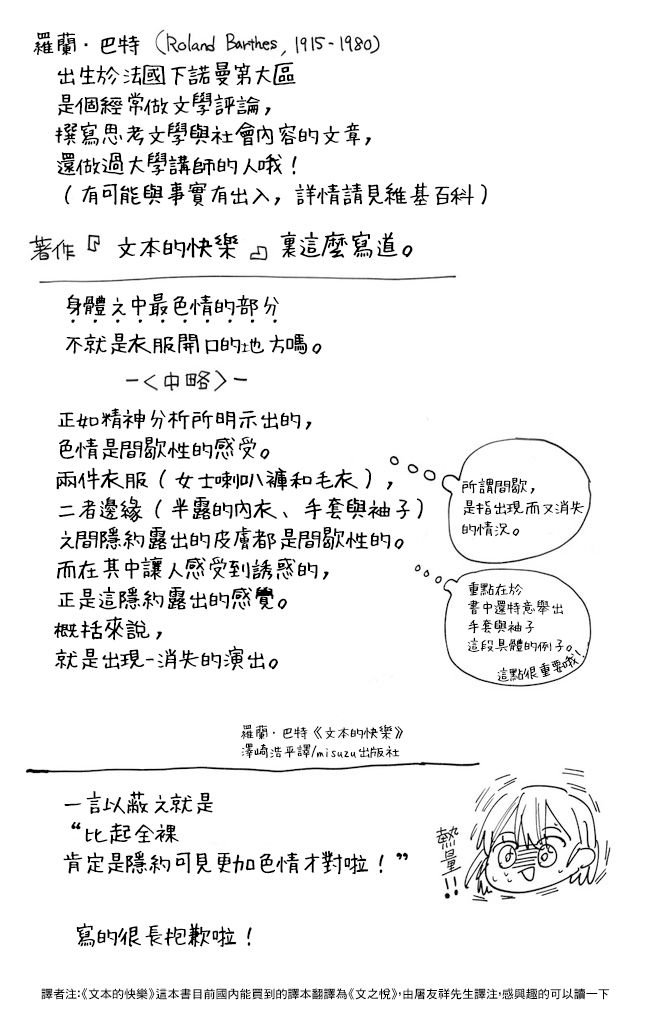 羅蘭・巴特（Roland Barthes, 1915-1980）
出生於法國下諾曼第大區
是個經常做文學評論，
撰寫思考文學與社會內容的文章，
還做過大學講師的人哦！
（有可能與事實有出入，詳情請見維基百科）
著作『文本的快樂』裏這麼寫道。
身體之中最色情的部分
不就是衣服開口的地方嗎。
－＜中略＞－
正如精神分析所明示出的，
色情是間歇性的感受。
兩件衣服（女士喇叭褲和毛衣），
二者邊緣（半露的內衣、手套與袖子）
之間隱約露出的皮膚都是間歇性的。
而在其中讓人感受到誘惑的，
正是這隱約露出的感覺。
概括來說，
就是出現-消失的演出。
所謂間歇，
是指出現而又消失
的情況。
重點在於
書中還特意舉出
手套與袖子
這段具體的例子。
這點很重要哦！
羅蘭・巴特《文本的快樂》
澤崎浩平譯/misuzu出版社
一言以蔽之就是
“比起全裸
肯定是隱約可見更加色情才對啦！”
熱量!!
寫的很長抱歉啦！
譯者注：《文本的快樂》這本書目前國內能買到的譯本翻譯為《文之悅》，由屠友祥先生譯注，感興趣的可以讀一下